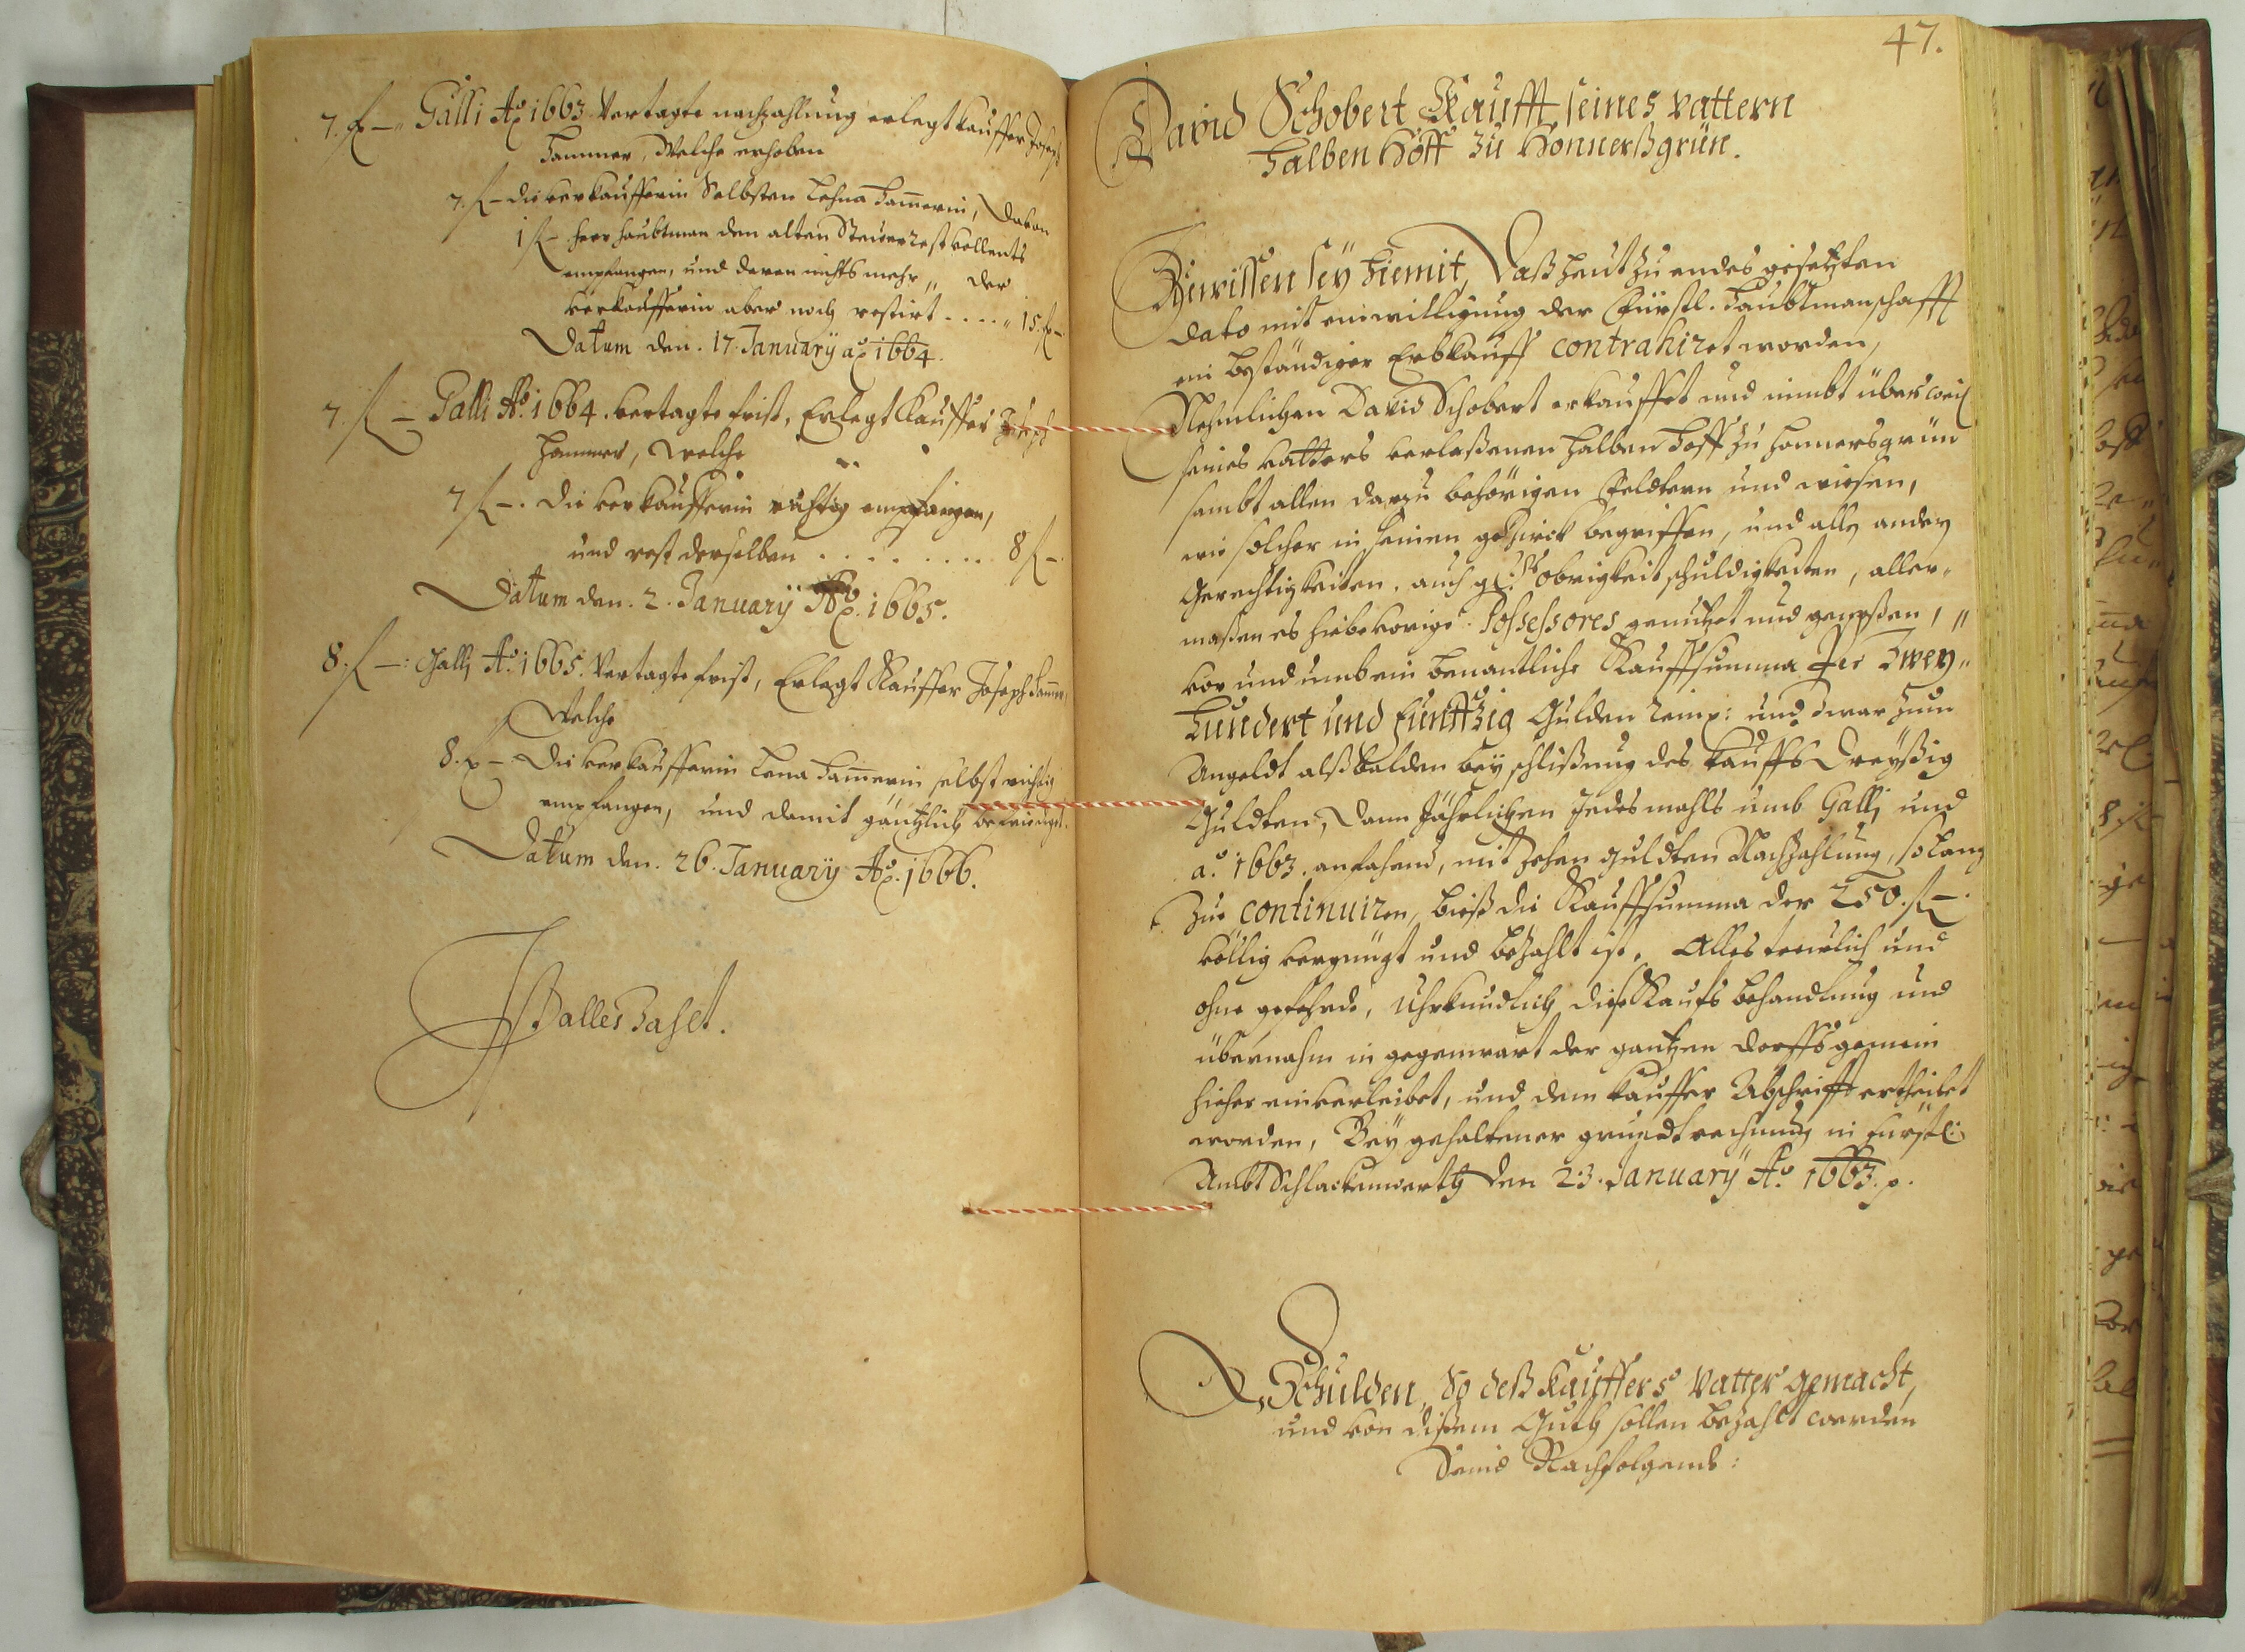 7. f – Galli Aõ 1663. Vertagte nachzahlung erlegt kauffer Joseph
Hammer, Welche erhoben
7. f – die verkaufferin Selbsten Lehna Ham̄erin, Davon
1 f – herr haubtman den alten Steuer rest vollents
empfangen, und deren nichts mehr „ der
verkaufferin aber noch restirt - - - - „ 15. f –
Datum den. 17. January aõ 1664.
7. f – Galli Aõ 1664. vertagte frist, Erlegt Kauffer Joseph
Hammer, welche
7 f –. die verkaufferin richtig empfangen,
und rest derselben . . . . . . . . . 8 f –
Datum den. 2. January Aõ. 1665.
8. f –: Galli Aõ 1665. Vertagte frist, Erlegt Kauffer Joseph Ham̄er,
Welche
8. f – Die verkaufferin Lena Ham̄erin selbst richtig
empfangen, und damit gäntzlich
Datum den. 26. January Aõ. 1666.
Ist alles Zahlt.
47.
David Schobert Kaufft seines vattern
halben Hoff zu Honnerßgrün.
Zuwissen sey hiemit, Daß heut zu endes gesetzten
dato mit einwilligung der Fürstl. Haubtmanschafft
ein beständiger Erbkauff contrahiret worden,
Nehmlichen David Schobert erkauffet und nimbt über
seines vatters verlaßenen halben Hoff zu Honnersgrün
sambt allen darzu behörigen Feldtern und wiesen,
wie solcher in seinen gezirck begriffen, und alle andere
Gerechtigkeiten, auch obrigkeit schuldigkeiten, aller-
maßen es hiebevorige Possessores genutzet und genoßen, „
vor und umb ein benantliche Kauffsumma Per Zwey„
hundert und funffzig Gulden reinis: und zwar zum
Angeldt alßbalden bey schlißung des kauffs Dreyßig
Guldten, dann Jährlichen Jedesmahls umb Galli und
aõ 1663. anfahend, mit zehen guldten Nachzahlung, so lang
zue continuiren, bieß die Kauffsumma der 250. f –.
völlig vergnügt und bezahlt ist, Alles treulich und
ohne gefehrde, Uhrkundlich diese Kaufs behandlung und
übernahm in gegenwart der gantzen dorffs gemein
hieher einverleibet, und dem kauffer Abschrifft ertheilet
worden, Bey gehaltener grundt rechnung in fürstl:
Ambt Schlackenwerth den 23. January Aõ 1663. p.
Schulden, So deß Kauffers Vatter gemacht,
und von dißem Guth sollen bezahlt werden
Seind Nachfolgende: